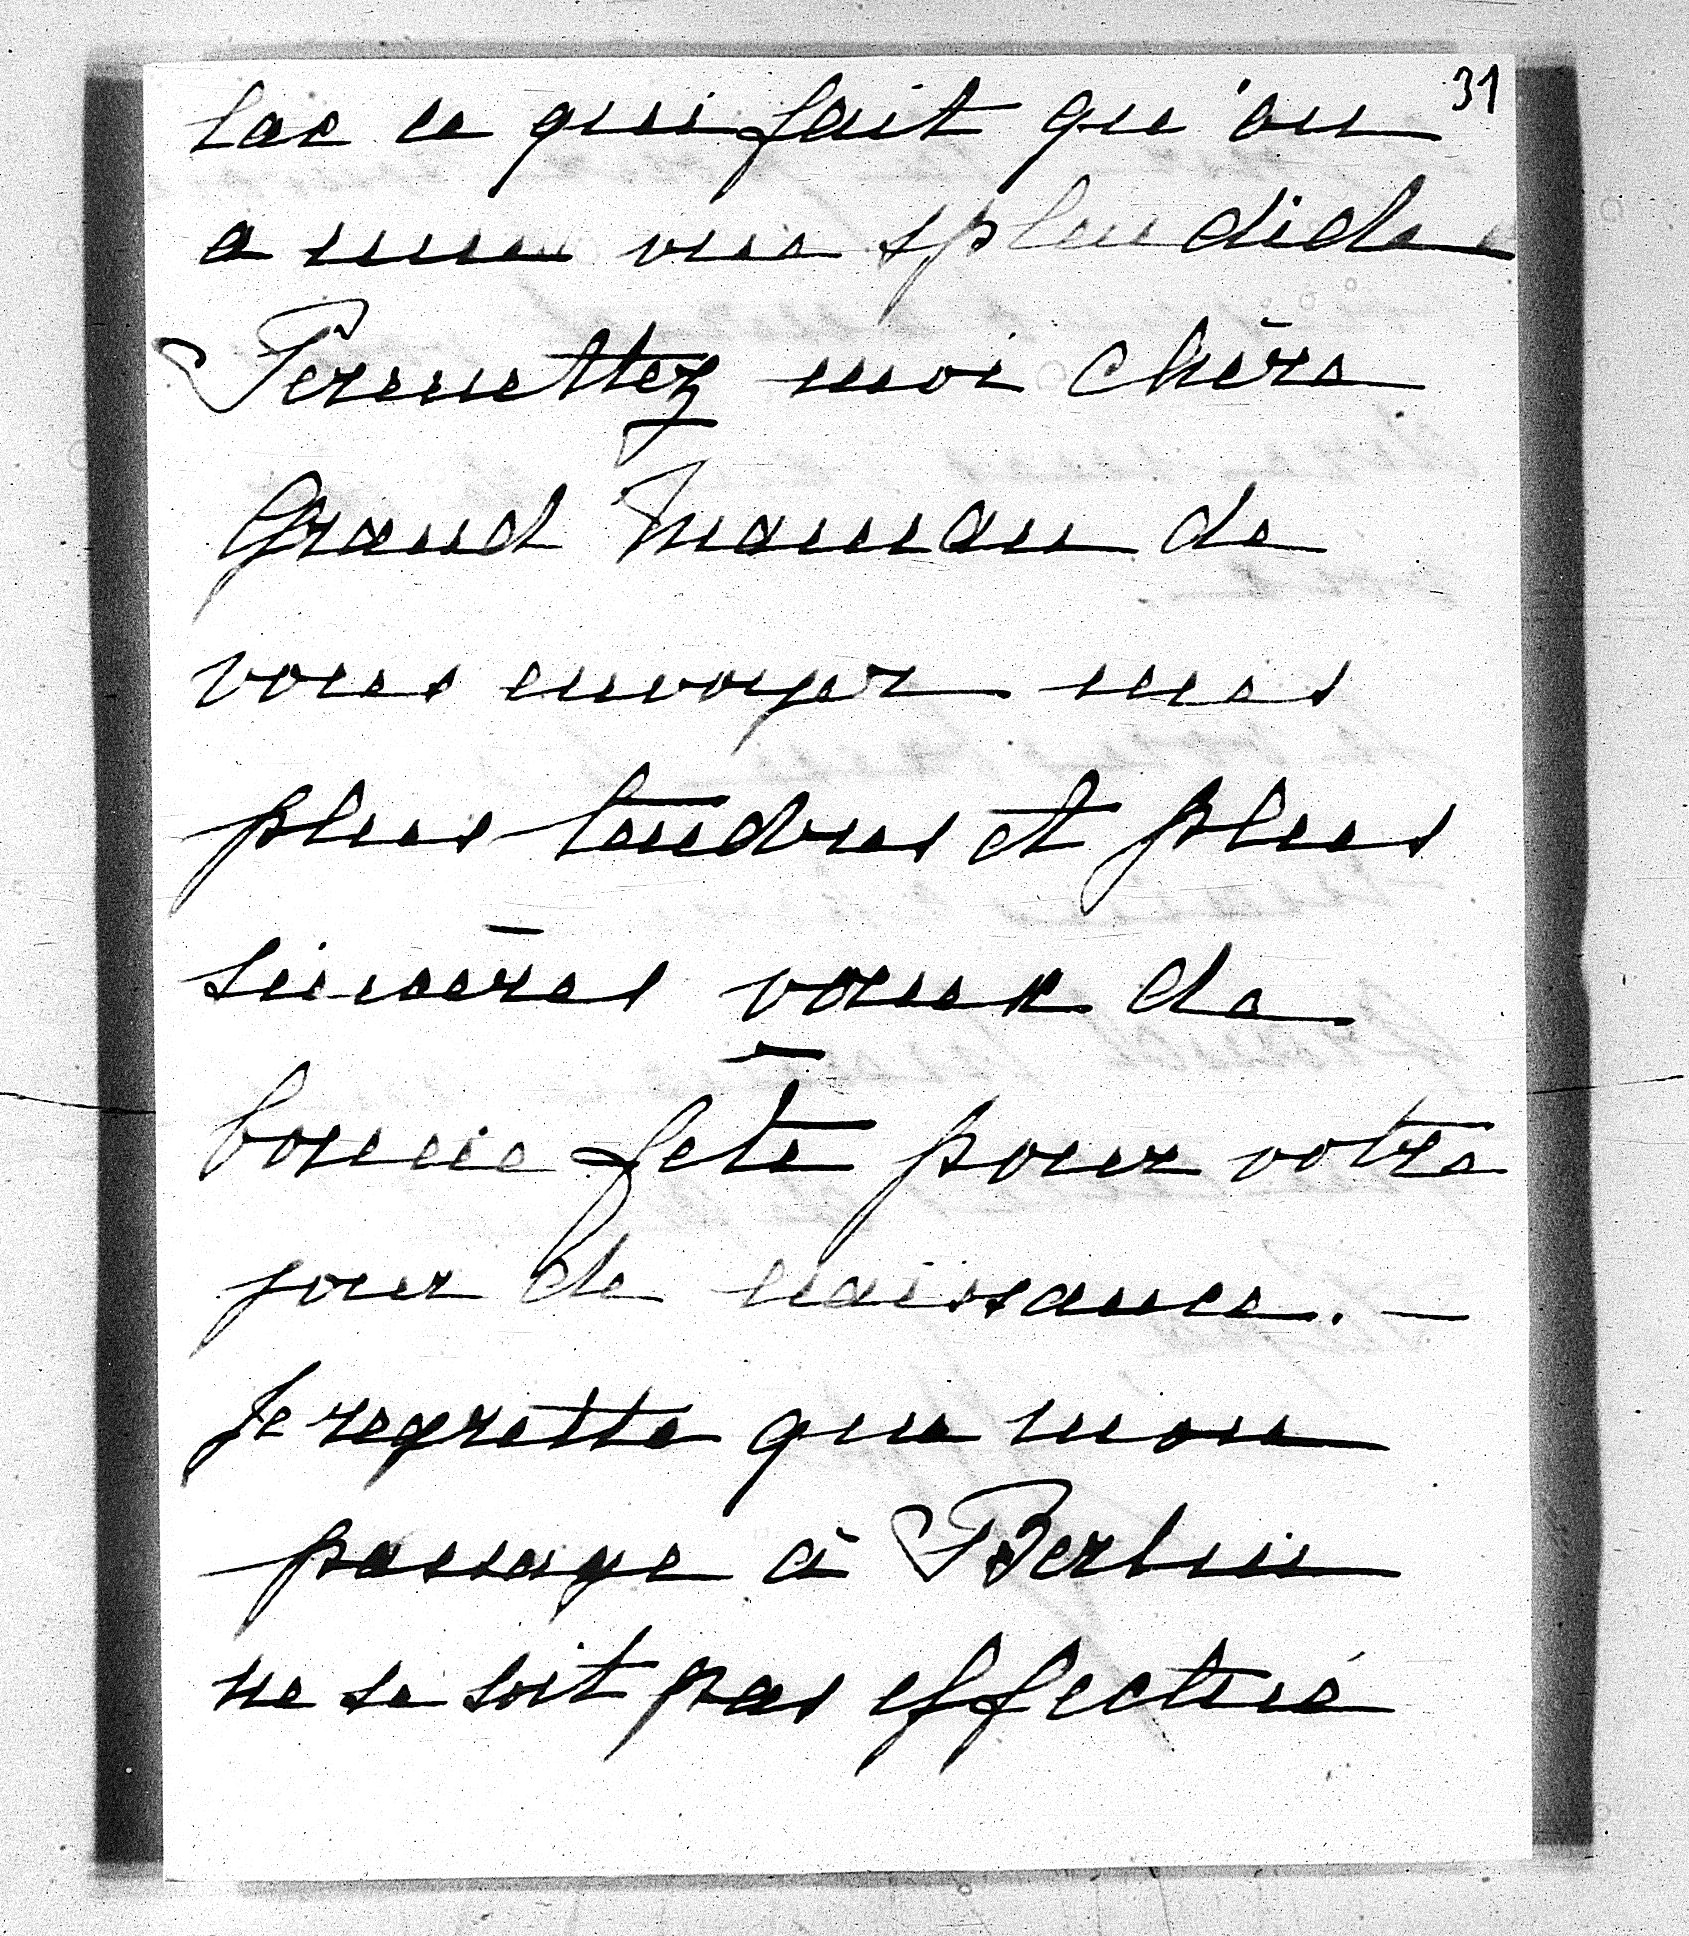 31
lac ce qui fait qu'on
a une vue splendide
Permettez moi chère
Grand Maman de
vous envoyer mes
plus tendres et plus
sincères voeux de
bonne fête pour votre
jour de naissance. —
Je regrette que mon
passage à Berlin
ne se soit pas effectué